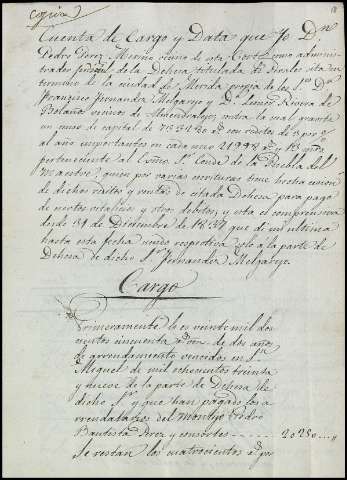 copia
Cuenta de Cargo y Data que Yo Dn
Pedro Perez Merino vecino de esta Corte como adminis-
trador judicial de la Dehesa titulada de Rosales sita en
termino de la ciudad de Merida propia de los Sres Dn
Francisco Fernandez Melgarejo y Da Leonor Rivera de
Bolaños vecinos de Almendralejo, contra la cual gravita
un censo de capital de 783280 rs con reditos de 3 por %
al año importantes en cada uno 21998 rs y 18 mrs
perteneciente al Exmo Sr Conde de la Puebla del
Maestre, quien por varias escrituras tiene hecha cesion
de dichos reditos y rentas de citada Dehesa para pago
de rentas vitalicias y otros debitos, y esta es comprensiva
desde 31 de Diciembre de 1837 que di mi ultima
hasta esta fecha unido respectiva solo á la parte de
Dehesa de dicho Sr Fernandez Melgarejo.
Cargo
Primeramente lo es veinte mil dos
cientos cincuenta rs vn de dos años
de arrendamiento vencidos en Sn
Miguel de mil ochocientos treinta
y nueve de la parte de Dehesa de
dicho Sr y que han pagado los a-
rrendatarios del Montijo Pedro
Bautista Perez y consortes 20250
Se restan los cuatrocientos rs por